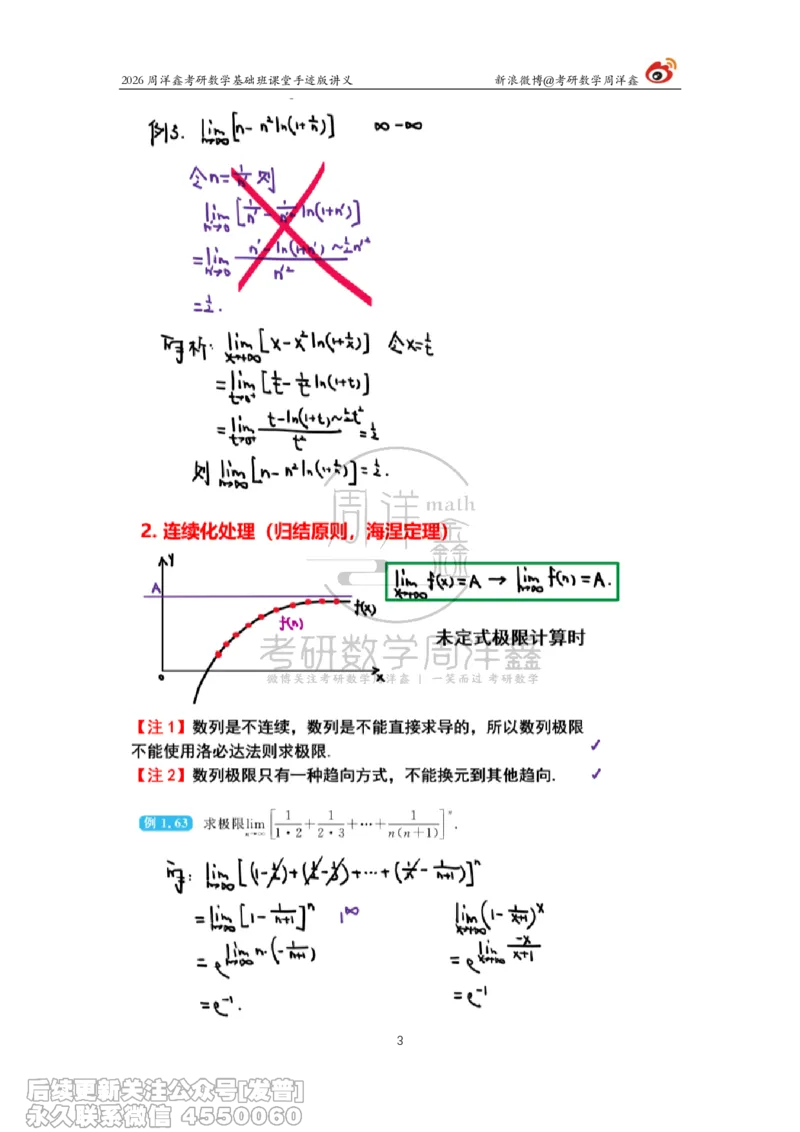 2026 周洋鑫考研数学基础班课堂手迹版讲义 新浪微博@考研数学周洋鑫
例3. lim_{n→∞}[n-n²ln(1+1/n)] ∞-∞
令n=1/n' 则
lim_{n'→0}[1/n'-1/n'²ln(1+n')]
=lim_{n'→0} (n'-ln(1+n')~½n'²)/n'²
=½.
解析: lim_{x→+∞}[x-x²ln(1+1/x)] 令x=1/t
=lim_{t→0⁺}[1/t-1/t²ln(1+t)]
=lim_{t→0⁺} (t-ln(1+t)~½t²)/t² =½
则 lim_{n→∞}[n-n²ln(1+1/n)]=½.
周洋 math
鑫
2. 连续化处理（归结原则，海涅定理）
y
A
lim_{x→+∞} f(x)=A → lim_{n→∞} f(n)=A.
f(x)
f(n)
未定式极限计算时
考研数学周洋鑫
o x
微博关注考研数学周洋鑫 | 一笑而过 考研数学
【注 1】数列是不连续，数列是不能直接求导的，所以数列极限
不能使用洛必达法则求极限. ✓
【注 2】数列极限只有一种趋向方式，不能换元到其他趋向. ✓
例 1.63 求极限lim_{n→∞}[1/(1·2)+1/(2·3)+⋯+1/(n(n+1))]ⁿ.
解: lim_{n→∞}[(1-½)+(½-⅓)+⋯+(1/n-1/(n+1))]ⁿ
=lim_{n→∞}[1-1/(n+1)]ⁿ 1^∞ lim_{x→+∞}(1-1/(x+1))ˣ
=e^{lim_{n→∞} n·(-1/(n+1))} =e^{lim_{x→+∞} -x/(x+1)}
=e⁻¹. =e⁻¹
3
后续更新关注公众号[发普]
永久联系微信 4550060